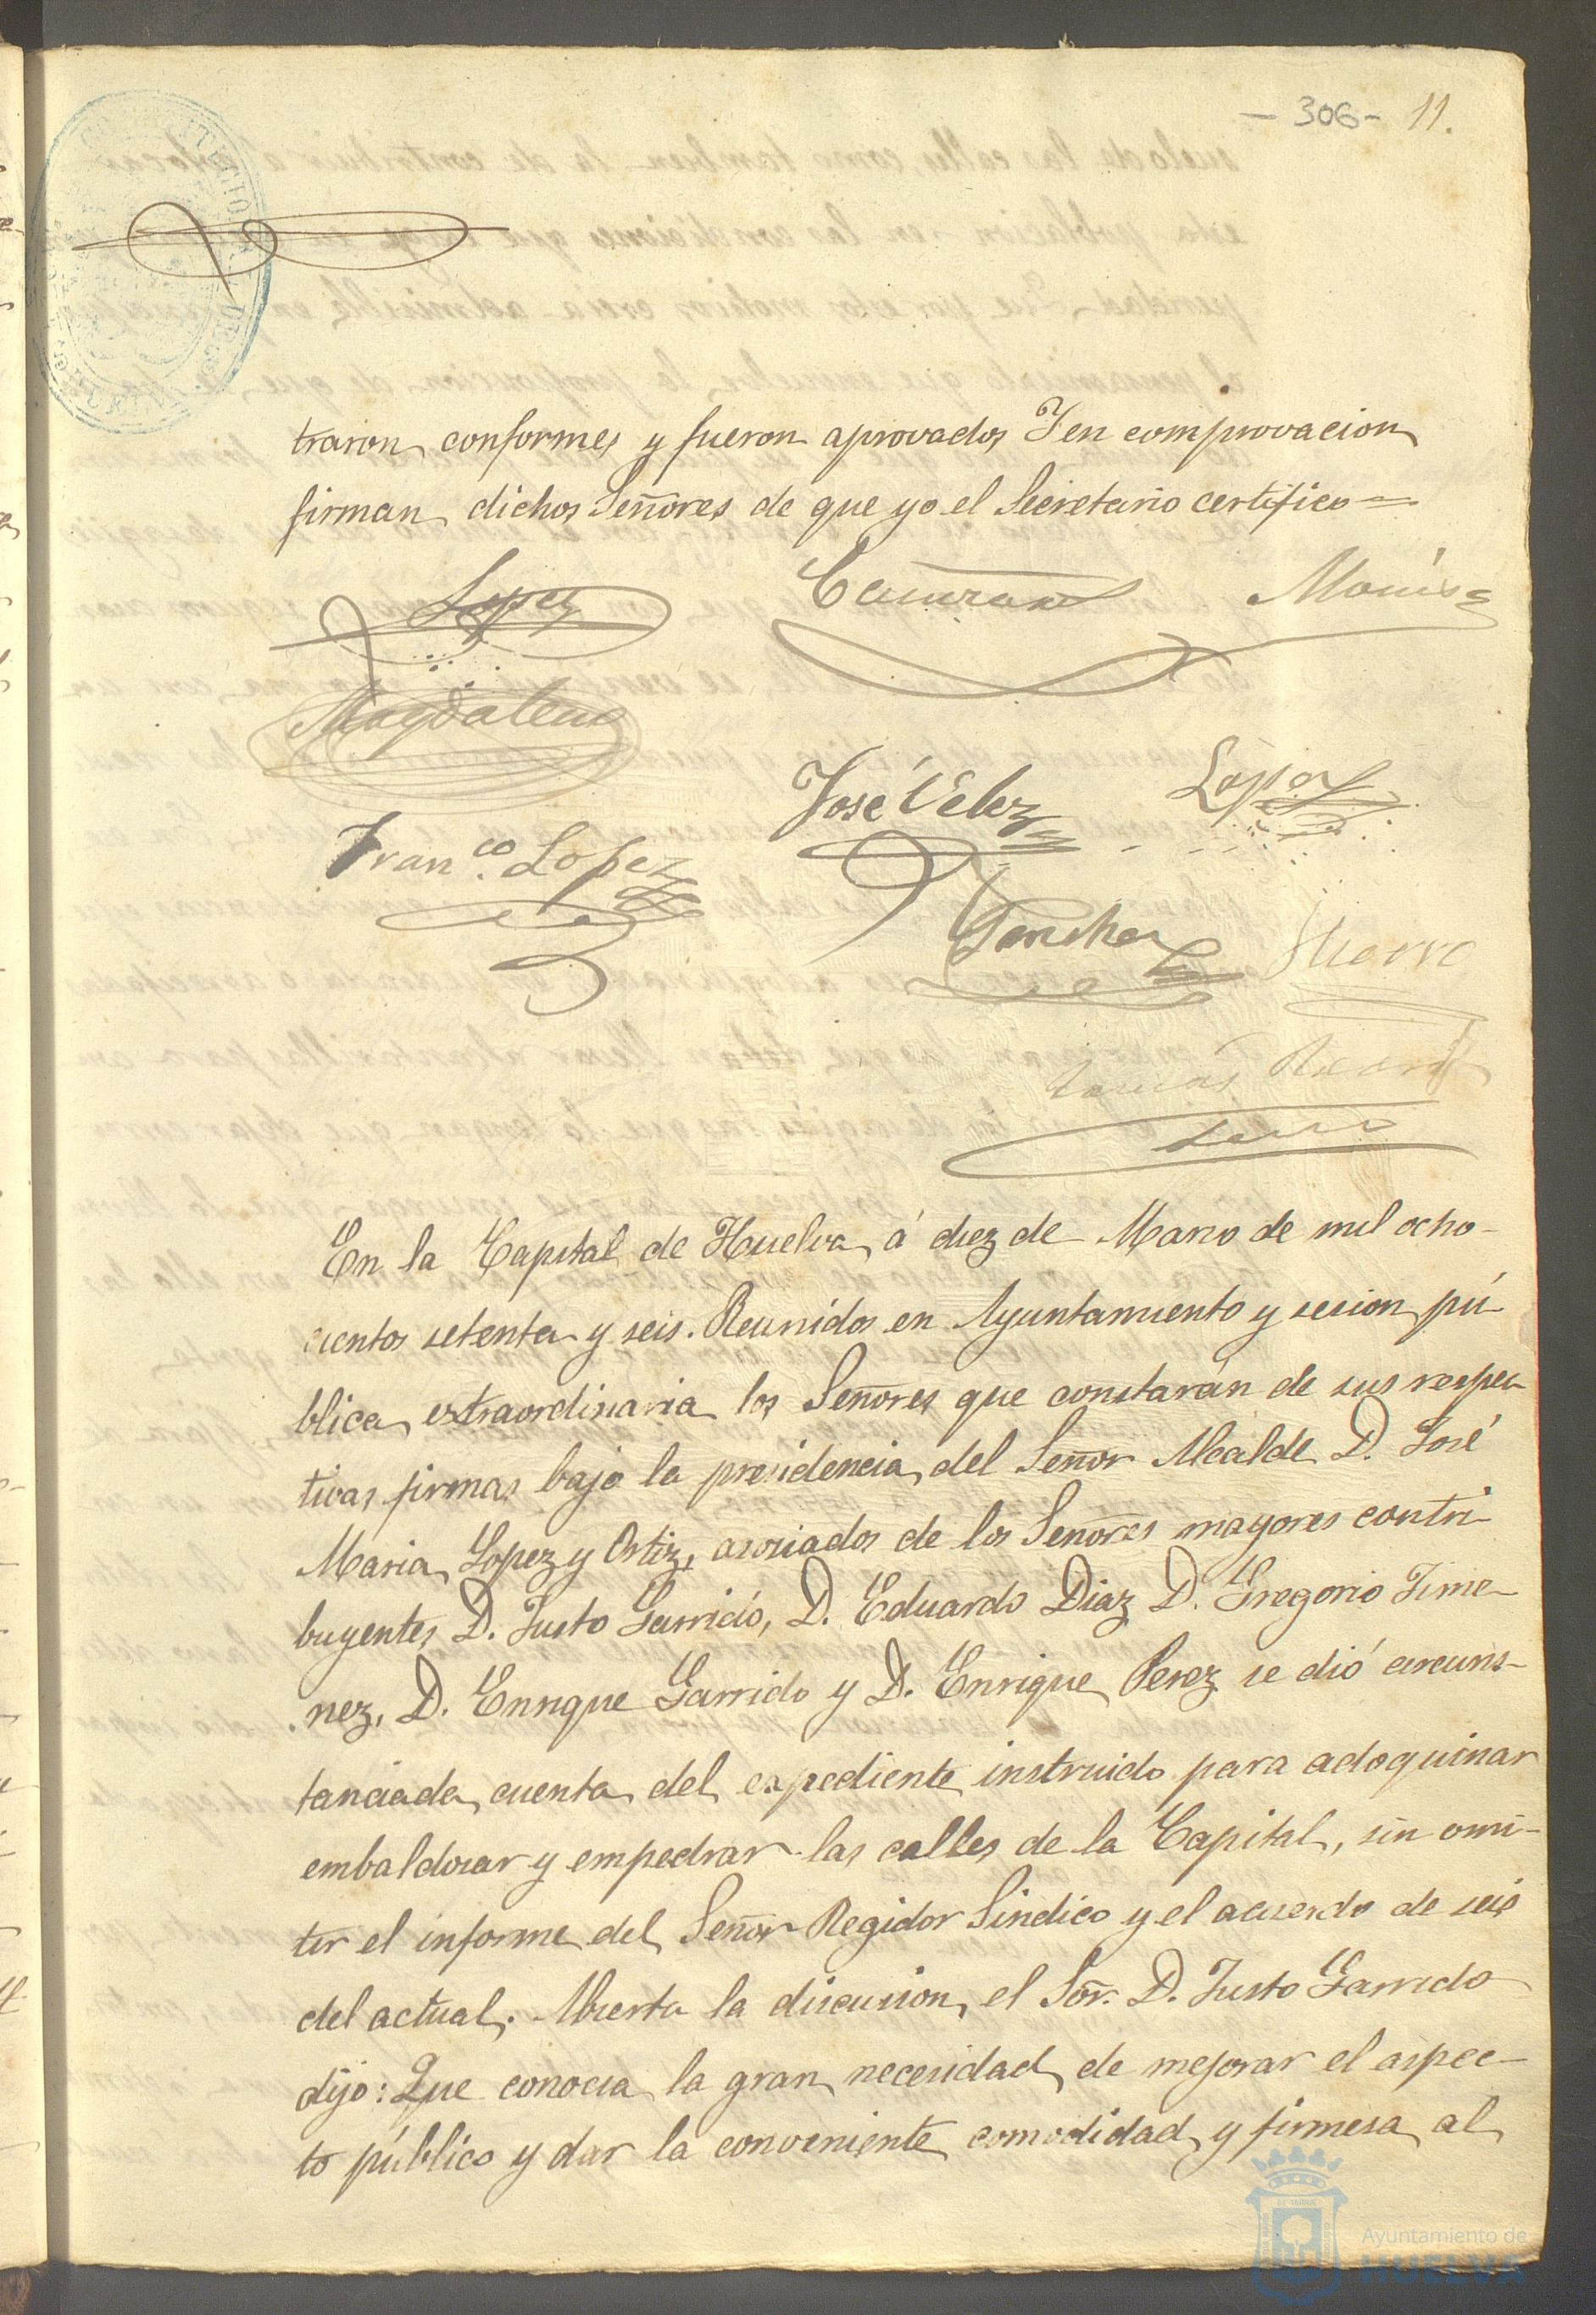 - 306 - 11.
traron conformes y fueron aprovados Y en comprovacion
firman dichos Señores de que yo el Secretario certifico =
Lopez
Magdalena
José Velez Lopez
Fran.co Lopez
Sanchez
En la Capital de Huelva á diez de Marzo de mil ocho-
cientos setenta y seis. Reunidos en Ayuntamiento y sesion pú-
blica extraordinaria los Señores que constarán de sus respec
tivas firmas bajo la presidencia del Señor Alcalde D. José
Maria Lopez y Ortiz, asociados de los Señores mayores contri-
buyentes D. Justo Garrido, D. Eduardo Diaz D. Gregorio Jime-
nez, D. Enrique Garrido y D. Enrique Perez se dió circuns-
tanciada cuenta del expediente instruido para adoquinar
embaldosar y empedrar las calles de la Capital, sin omi-
tir el informe del Señor Regidor Sindico y el acuerdo de seis
del actual. Abierta la discusion, el Sõr. D. Justo Garrido
dijo: Que conocia la gran necesidad de mejorar el aspec-
to público y dar la conveniente comodidad y firmesa al
Ayuntamiento de
HUELVA